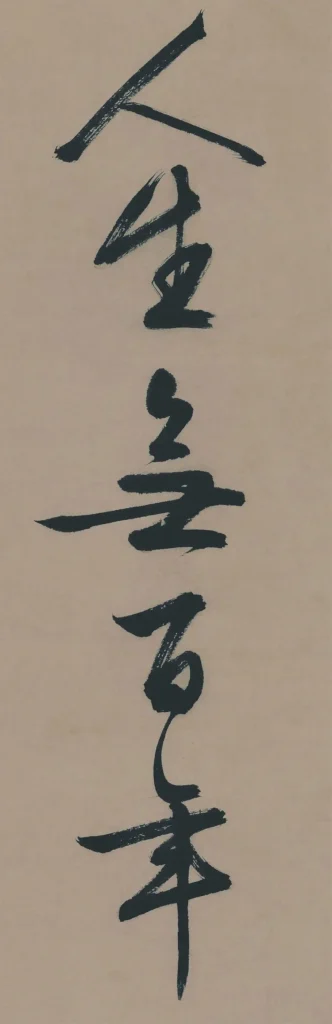 人生無百年